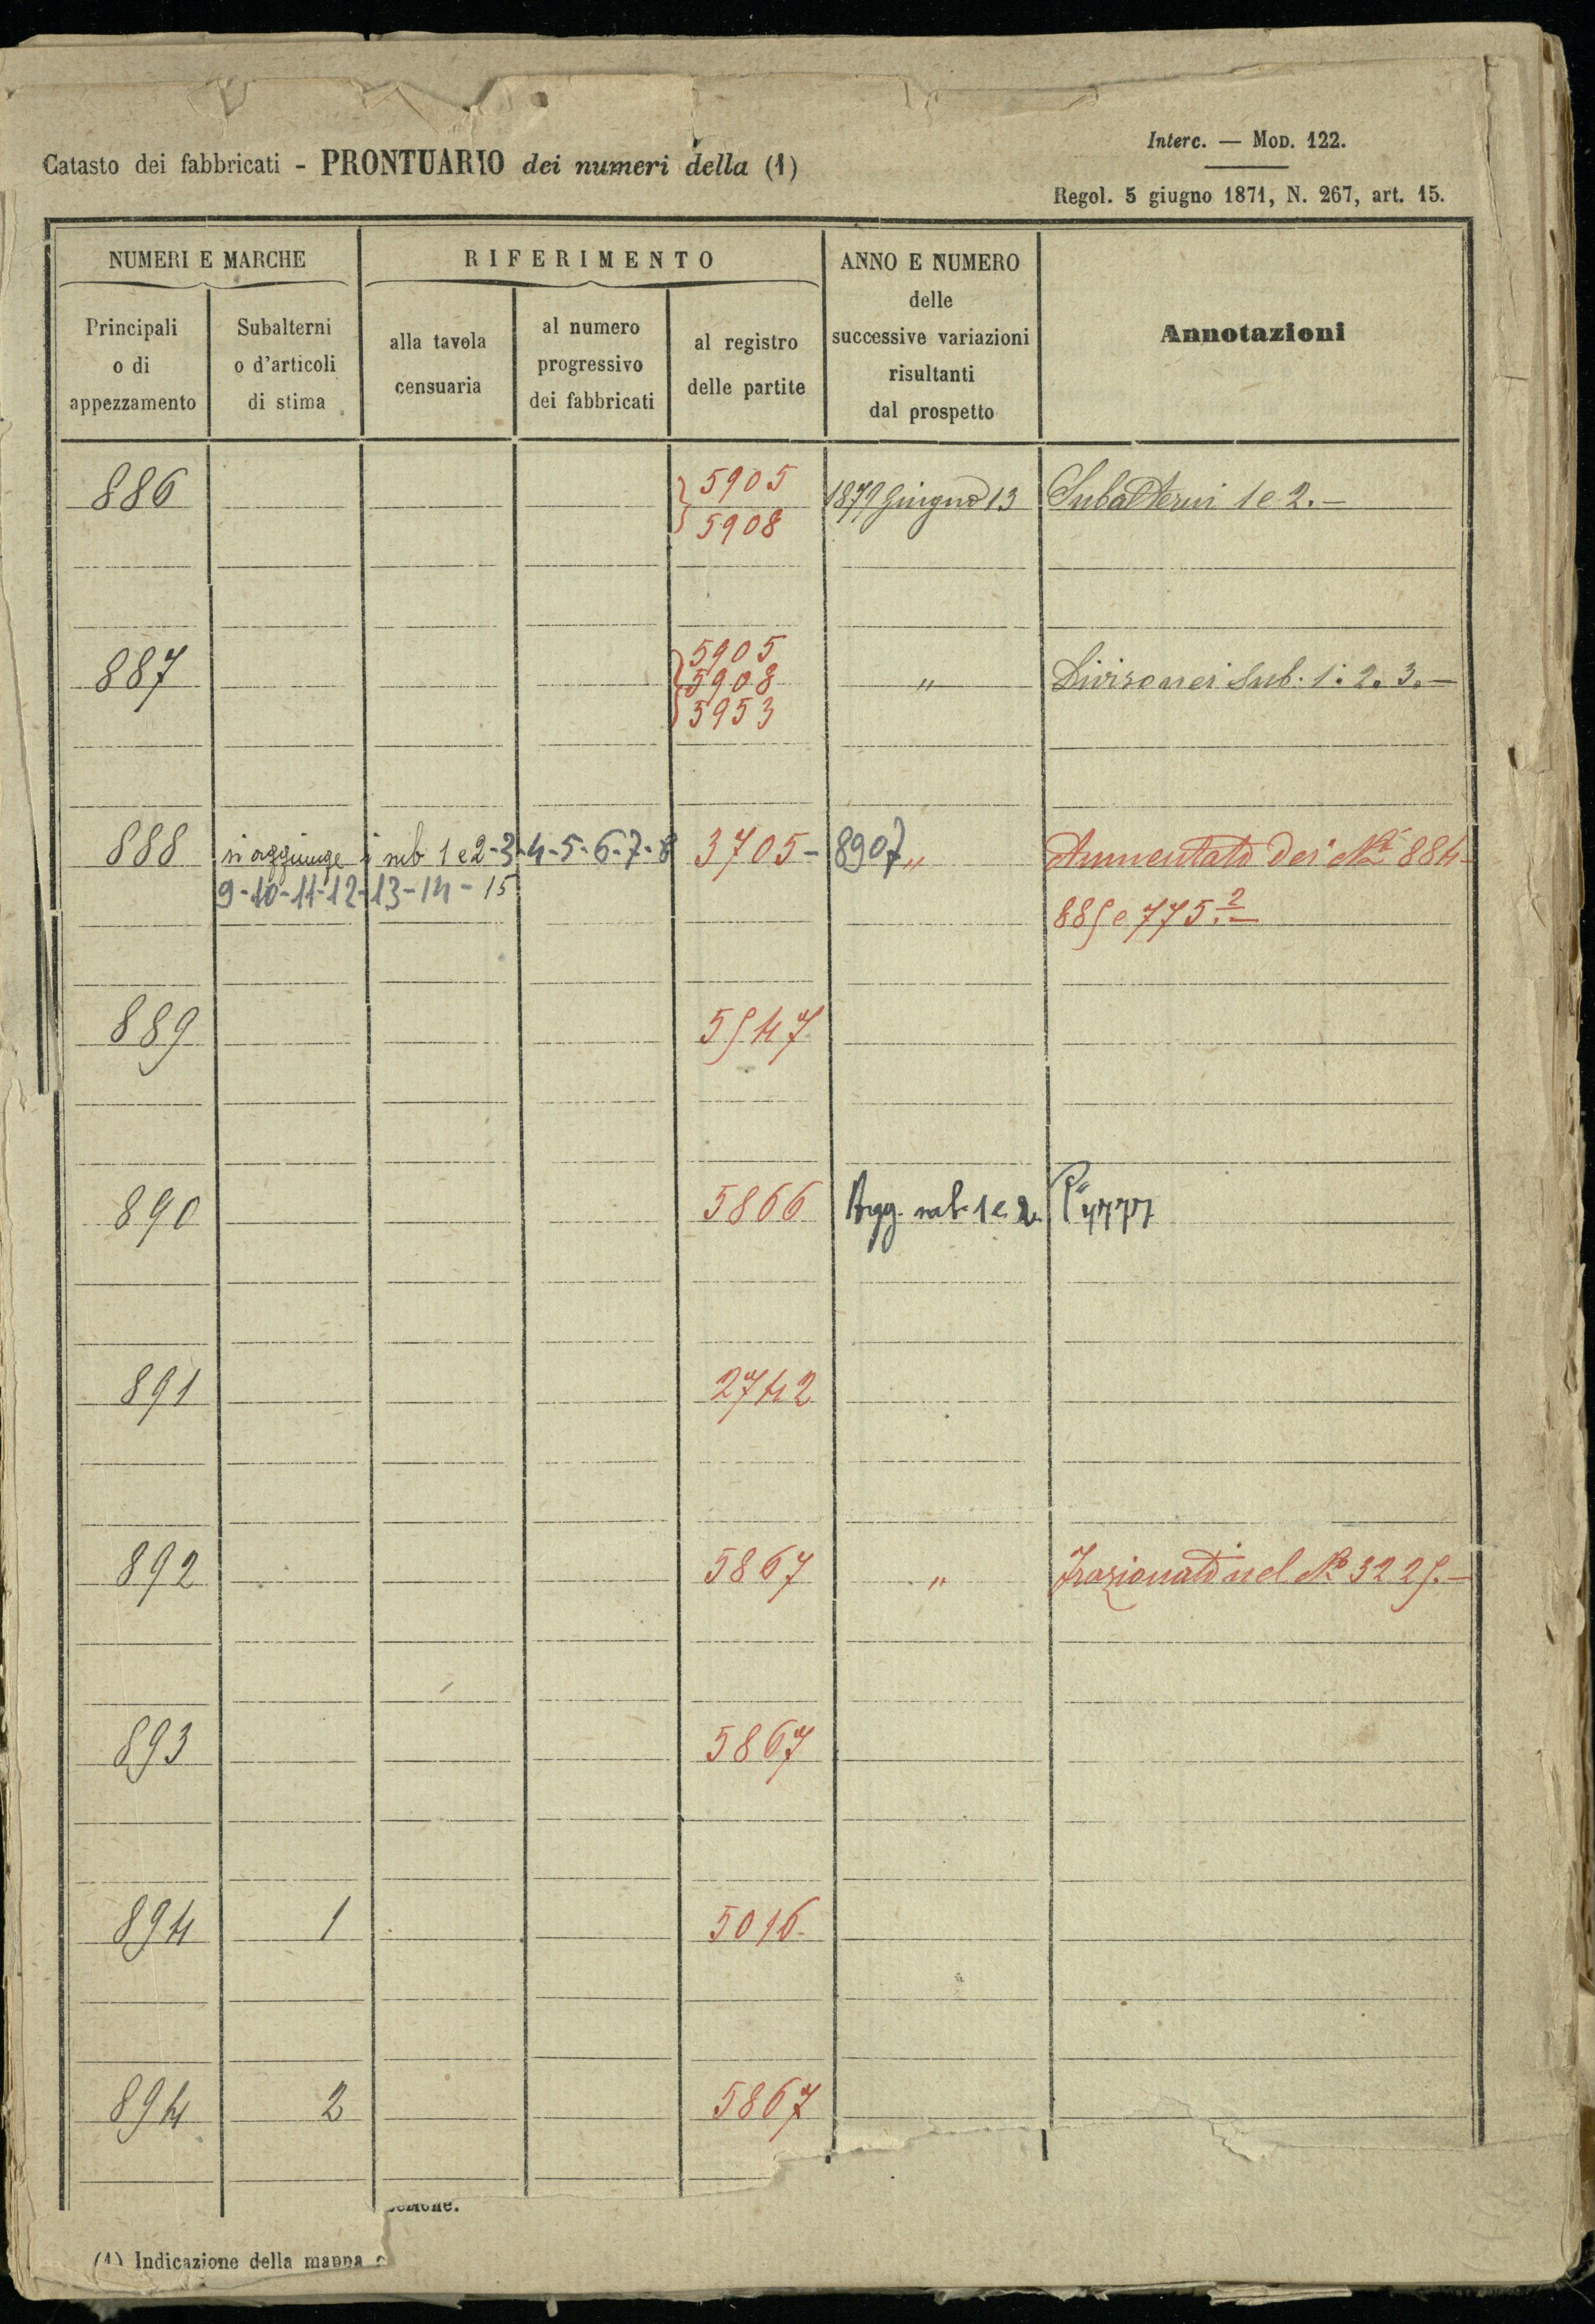 Interc. — Mod. 122.
Catasto dei fabbricati - PRONTUARIO dei numeri della (1)
Regol. 5 giugno 1871, N. 267, art. 15.
NUMERI E MARCHE
RIFERIMENTO
ANNO E NUMERO
delle
successive variazioni
risultanti
dal prospetto
Annotazioni
Principali
o di
appezzamento
Subalterni
o d'articoli
di stima
alla tavola
censuaria
al numero
progressivo
dei fabbricati
al registro
delle partite
5905
886 1879 Giugno 13 Subalterni 1 e 2.—
5908
5905
887 5908 " Divisone i Sub. 1. 2. 3.—
5953
888 si aggiunge i sub 1 e 2-3-4-5-6-7-8 3705- 8907 " Aumentato dei Ni 884-
9-10-11-12-13-14-15
885 e 775.2—
889 5547
890 5866 Agg. sub. 1 e 2. 4777
891 2742
892 5867 " Frazionato nel No 3225.—
893 5867
894 1 5016-
894 2 5867
sezione.
(1) Indicazione della mappa